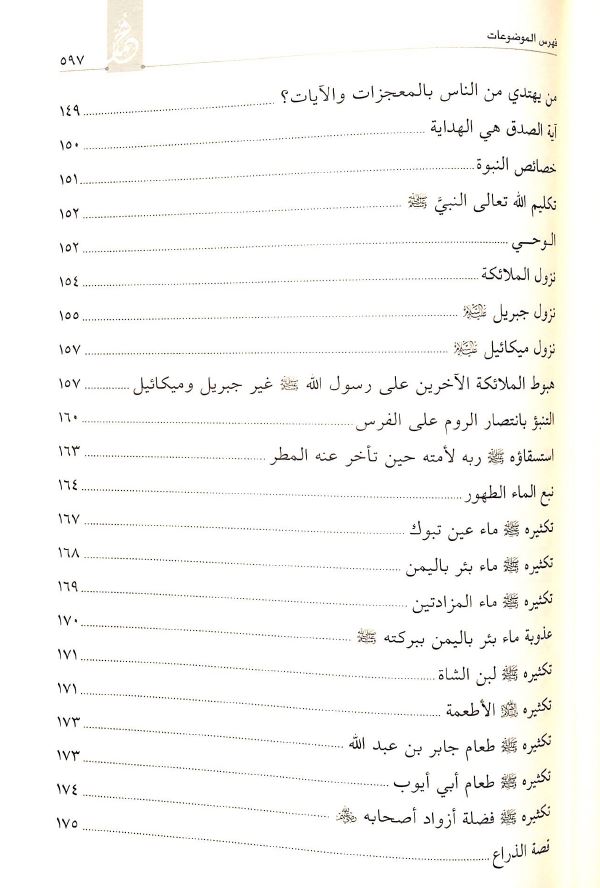 فهرس الموضوعات
٥٩٧
من يهتدي من الناس بالمعجزات والآيات؟ ........ ١٤٩
آية الصدق هي الهداية ........ ١٥٠
خصائص النبوة ........ ١٥١
تكليم الله تعالى النبيَّ ﷺ ........ ١٥٢
الـوحـــي ........ ١٥٢
نزول الملائكة ........ ١٥٤
نزول جبريل عليه السلام ........ ١٥٥
نزول ميكائيل عليه السلام ........ ١٥٧
هبوط الملائكة الآخرين على رسول الله ﷺ غير جبريل وميكائيل ........ ١٥٧
التنبؤ بانتصار الروم على الفرس ........ ١٦٠
استسقاؤه ﷺ ربه لأمته حين تأخر عنه المطر ........ ١٦٣
نبع الماء الطهور ........ ١٦٤
تكثيره ﷺ ماء عين تبوك ........ ١٦٧
تكثيره ﷺ ماء بئر باليمن ........ ١٦٨
تكثيره ﷺ ماء المزادتين ........ ١٦٩
عذوبة ماء بئر باليمن ببركته ﷺ ........ ١٧٠
تكثيره ﷺ لبن الشاة ........ ١٧١
تكثيره ﷺ الأطعمة ........ ١٧١
تكثيره ﷺ طعام جابر بن عبد الله ........ ١٧٣
تكثيره ﷺ طعام أبي أيوب ........ ١٧٣
تكثيره ﷺ فضلة أزواد أصحابه ........ ١٧٤
قصة الذراع ........ ١٧٥